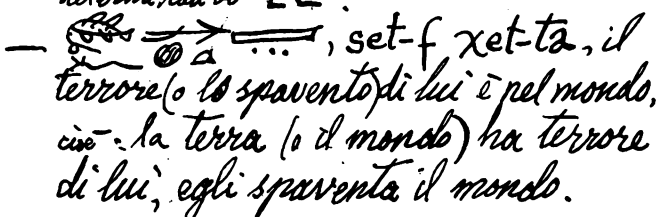 — , set-f χet-ta, il
terrore (o lo spavento) di lui è pel mondo,
cioè: la terra (o il mondo) ha terrore
di lui, egli spaventa il mondo.